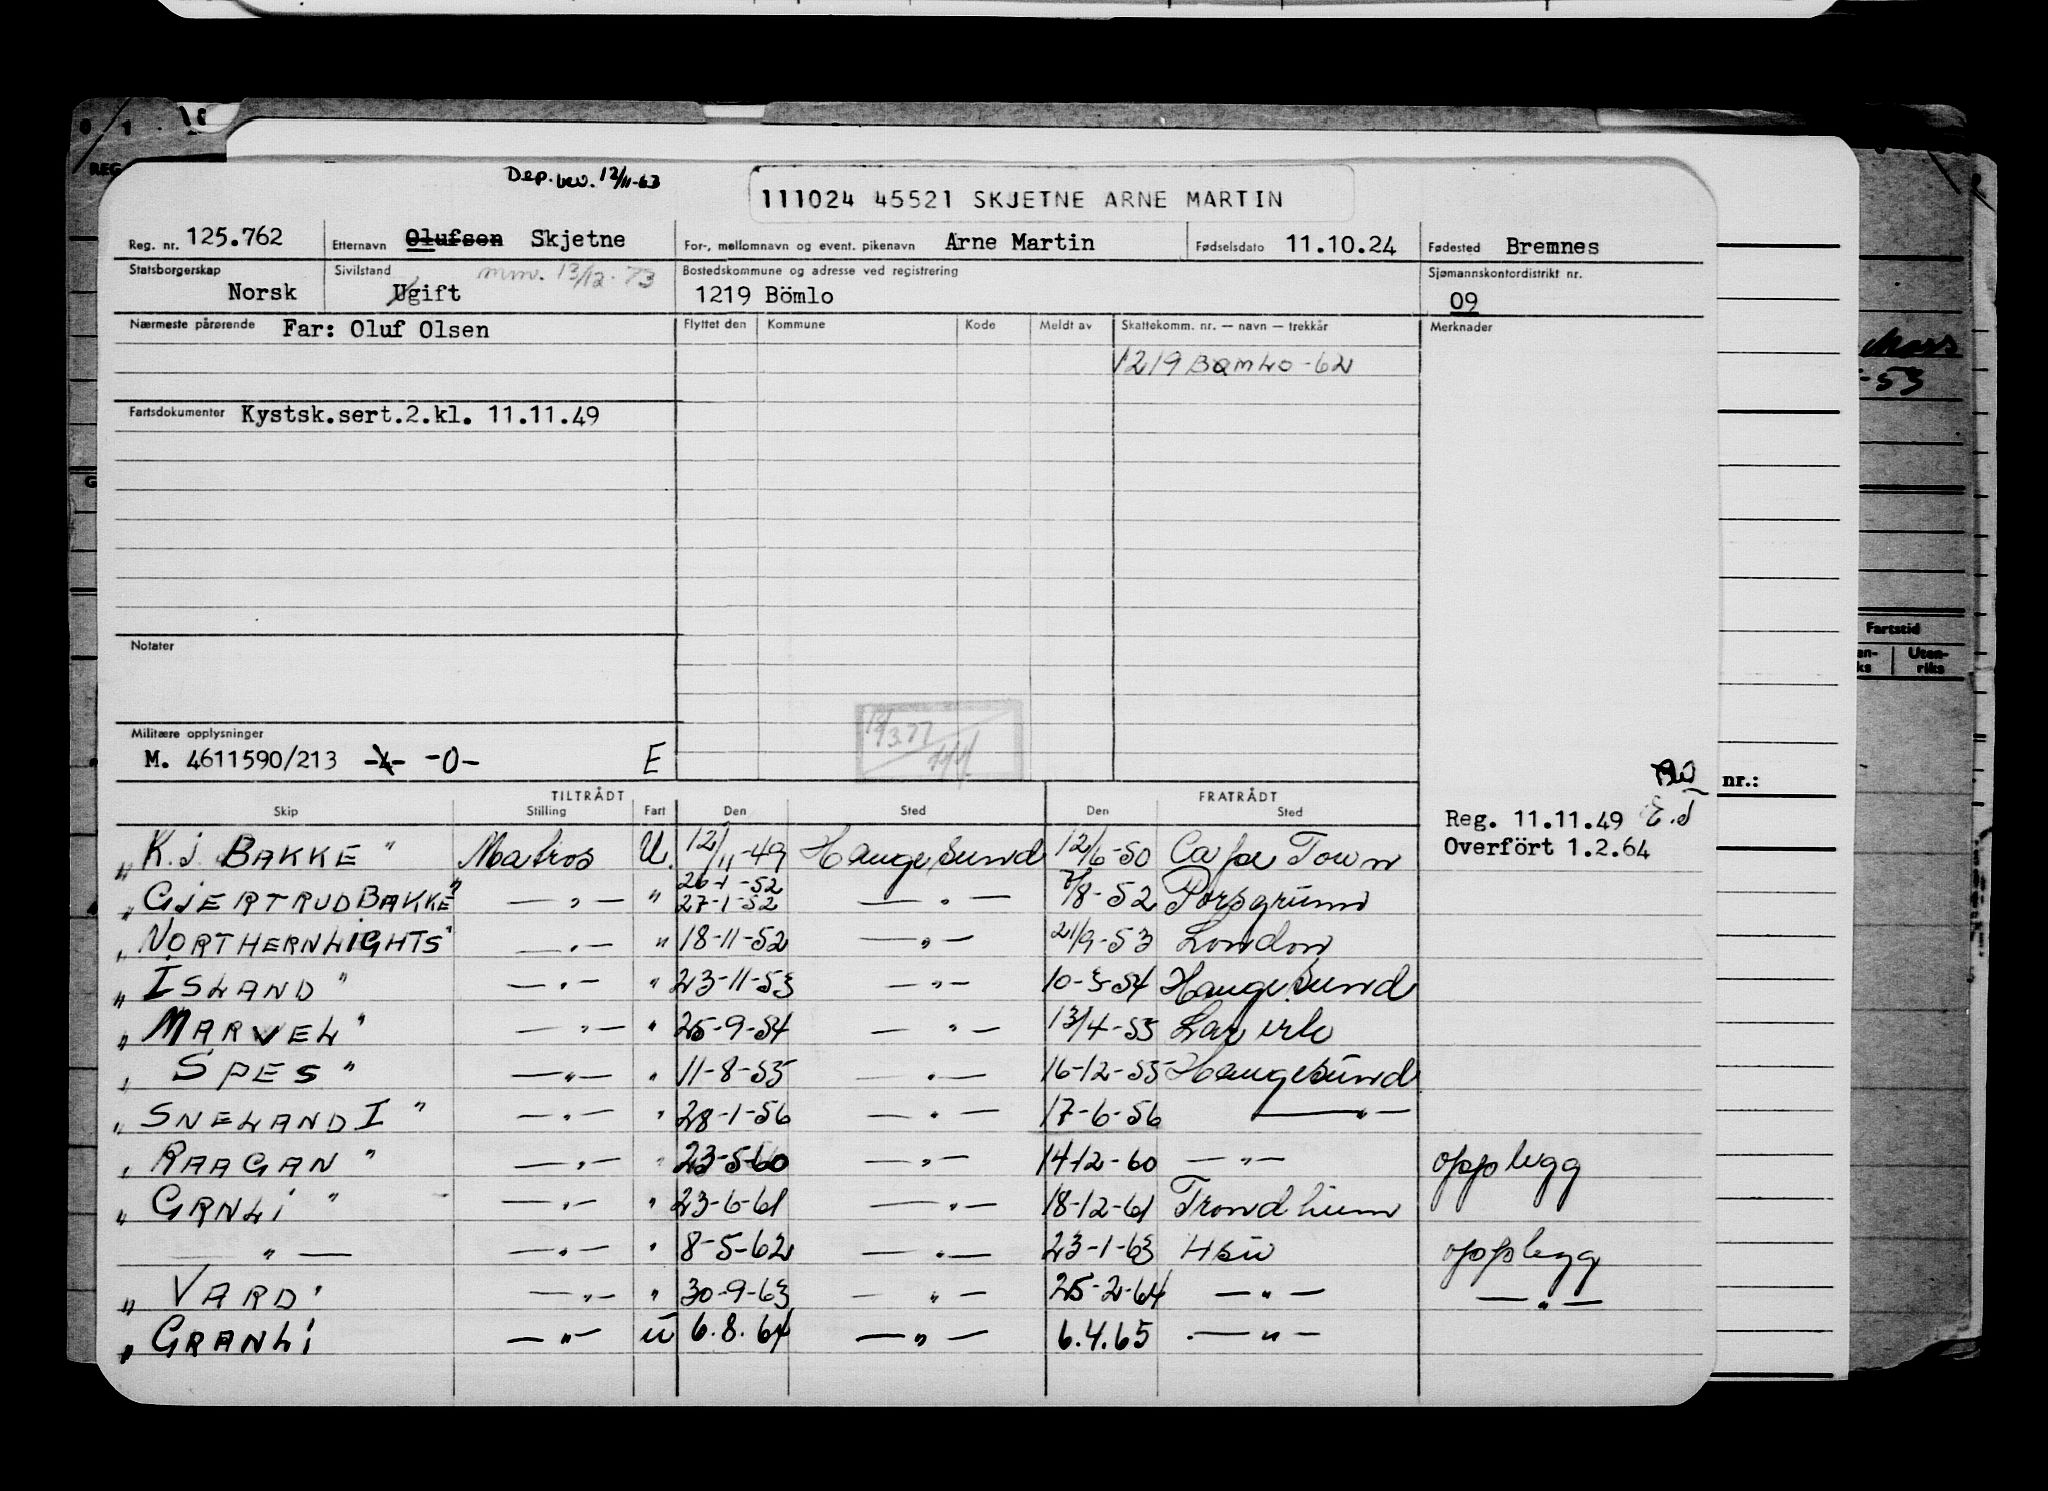 Dep. bev. 12/11-63
111024 45521 SKJETNE ARNE MARTIN
Reg. nr. 125.762 Etternavn Olufsen Skjetne For-, mellomnavn og event. pikenavn Arne Martin Fødselsdato 11.10.24 Fødested Bremnes
Statsborgerskap Norsk Sivilstand Ugift 13/12-73 Bostedskommune og adresse ved registrering 1219 Bömlo Sjømannskontordistrikt nr. 09
Nærmeste pårørende Far: Oluf Olsen Flyttet den Kommune Kode Meldt av Skattekomm. nr. — navn — trekkår Merknader
1219 BØMLO -62
Fartsdokumenter Kystsk.sert.2.kl. 11.11.49
Notater
Militære opplysninger
M. 4611590/213 -4- -0- E
TILTRÅDT FRATRÅDT
Skip Stilling Fart Den Sted Den Sted
Reg. 11.11.49 E.T
Overfört 1.2.64
" K.J BAKKE " Matros U. 12/11-49 Haugesund 12/6-50 Cape Town
" GJERTRUD BAKKE " — " — " 26-1-52 27-1-52 — " — 7/8-52 Porsgrunn
" NORTHERN LIGHTS " — " — " 18-11-52 — " — 21/9-53 London
" ISLAND " — " — " 23-11-53 — " — 10-3-54 Haugesund
" MARVEL " — " — " 25-9-54 — " — 13/4-55
" SPES " — " — " 11-8-55 — " — 16-12-55 Haugesund
" SNELAND I " — " — " 28-1-56 — " — 17-6-56 — " —
" RAAGAN " — " — " 23-5-60 — " — 14-12-60 — " — opplegg
" GRNLI " — " — " 23-6-61 — " — 18-12-61 Trondheim
— " — — " — " 8-5-62 — " — 23-1-63 Hsu opplegg
" VARD " — " — " 30-9-63 — " — 25-2-64 — " — — " —
" GRANLI — " — u 6.8.64 — " — 6.4.65 — " —
nr.:
-53
Fartstid
Uten-
riks